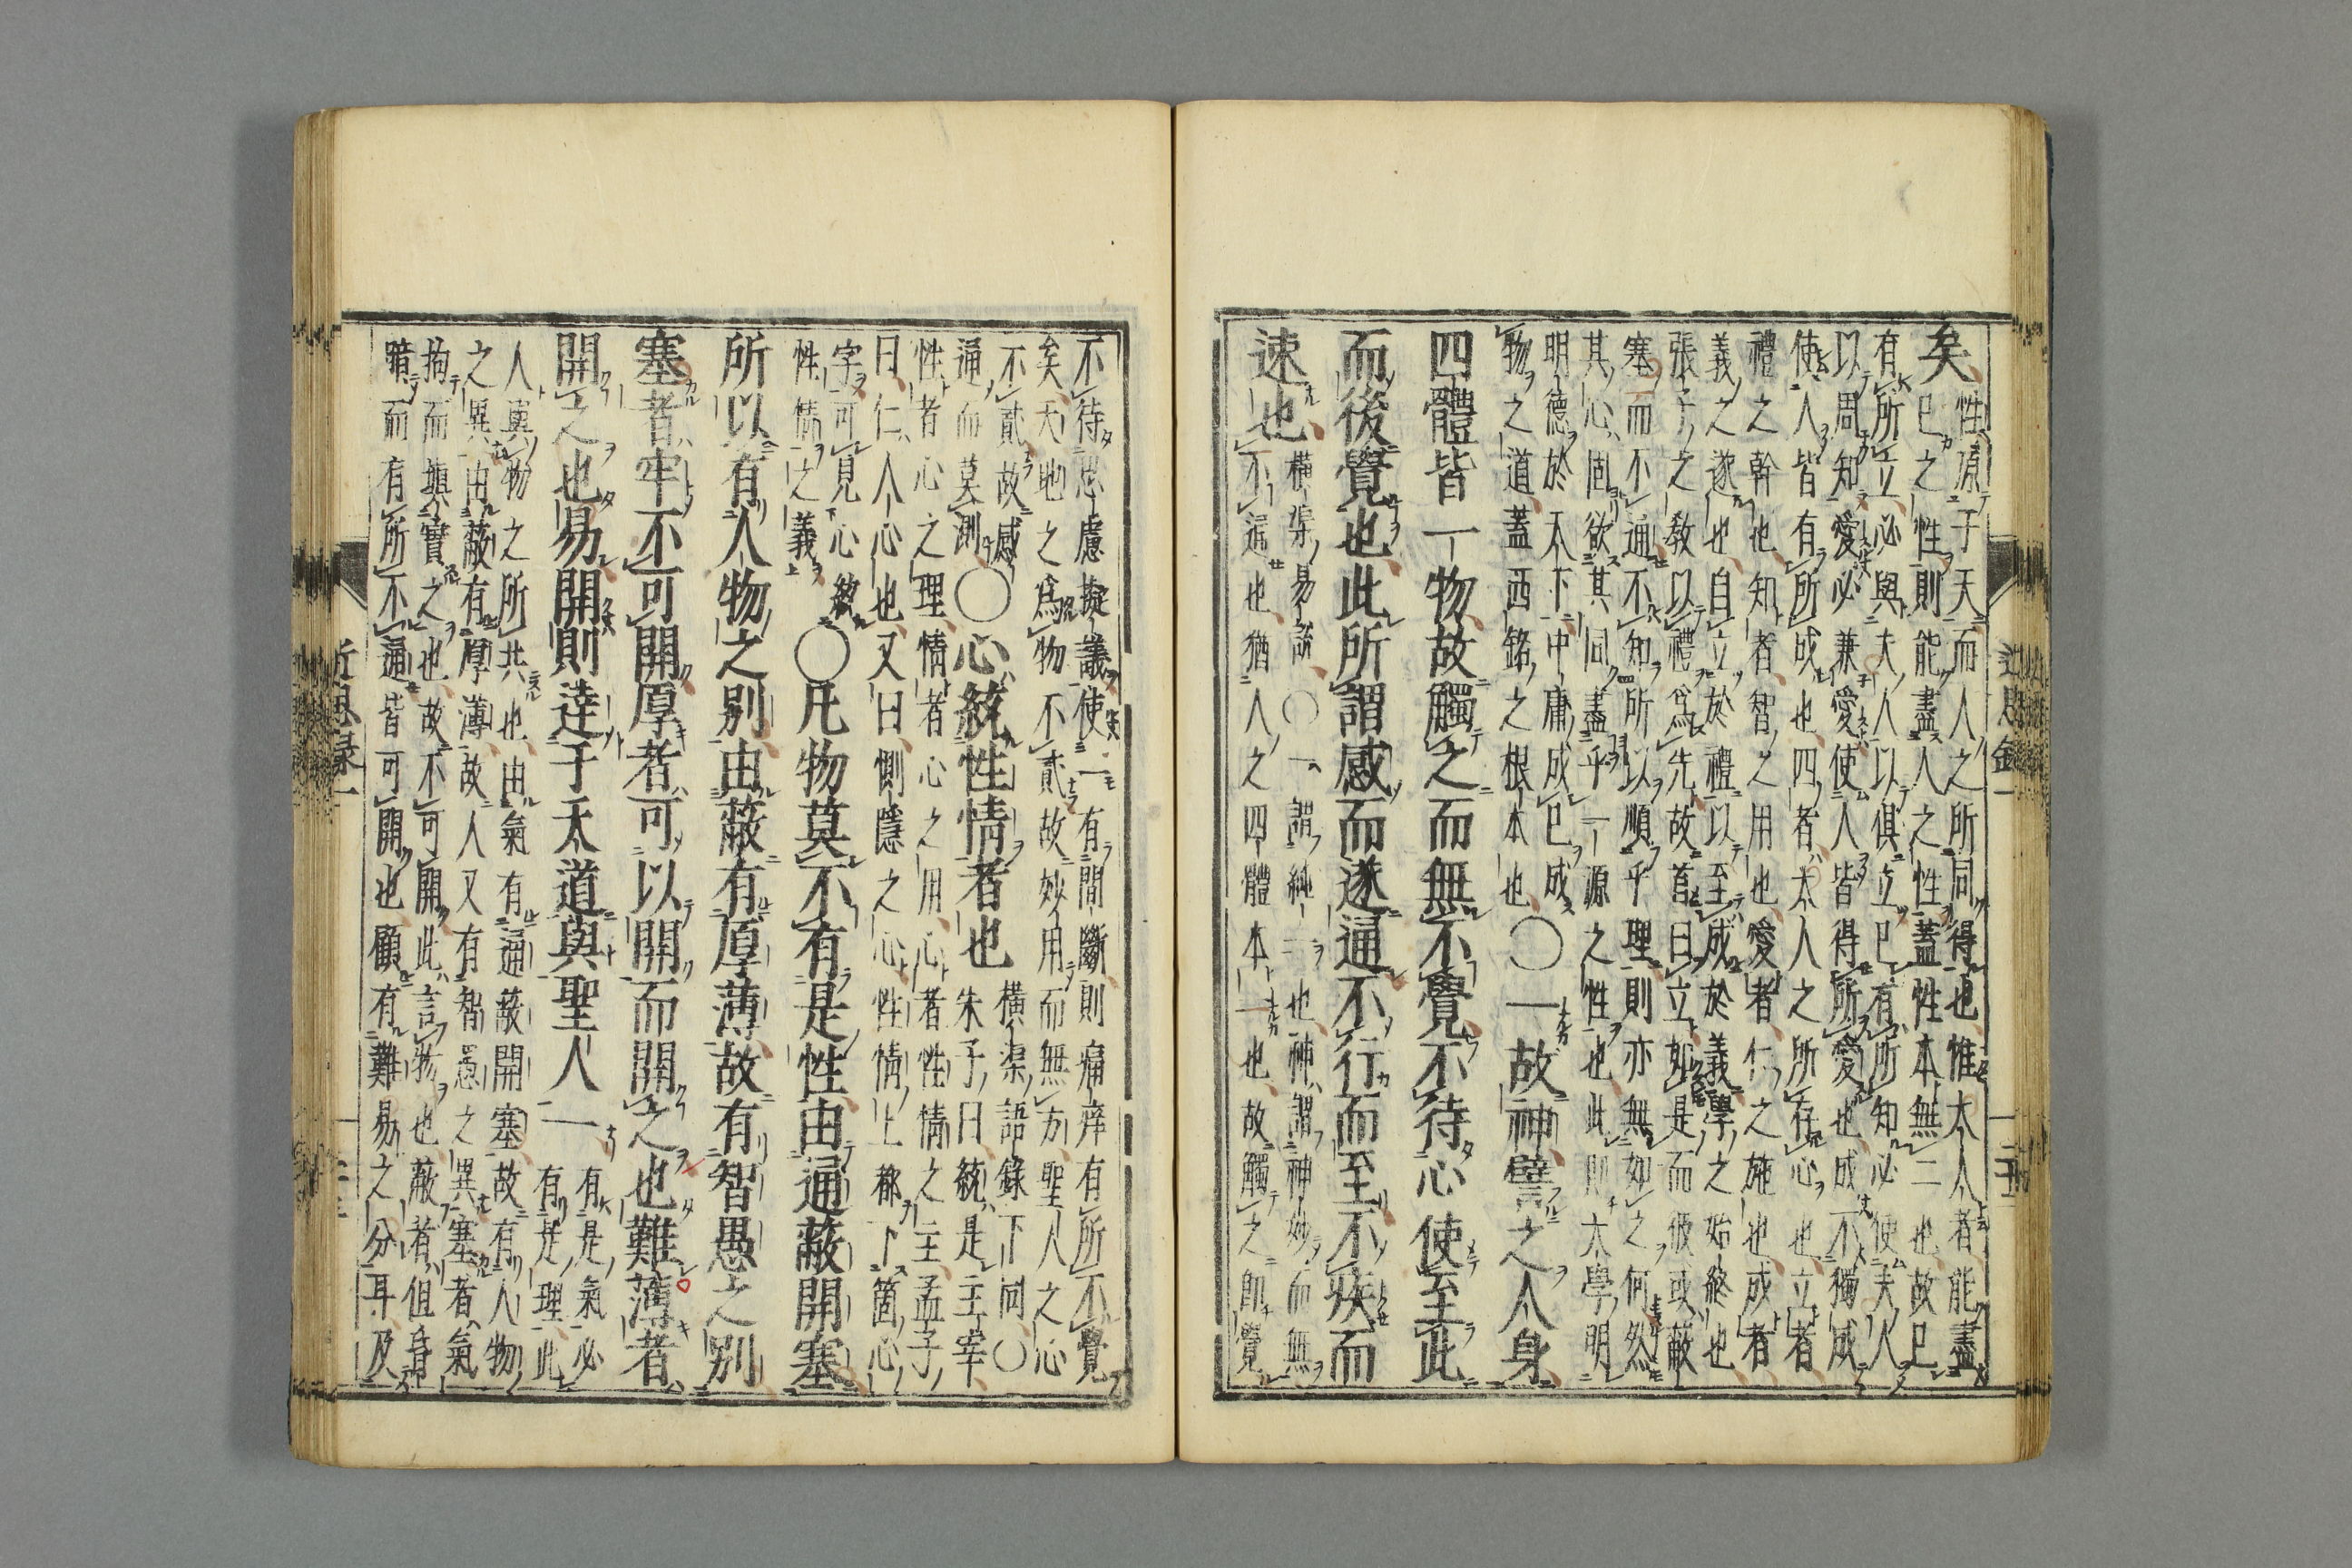 矣
性原于天而人之所同得也惟大人者能盡
已之性則能盡人之性蓋性本無二也故已
有所立必與夫人以俱立已有所知必使夫人
以周知愛必兼愛使人皆得所愛也成不獨成
使人皆有所成也四者大人之所存心也立者
禮之幹也知者智之用也愛者仁之施也成者
義之遂也自立於禮以至成於義學之始終也
張子之教以禮爲先故首曰立如是而彼或蔽
塞而不通不知所以順乎理則亦無如之何然
其心固欲其同盡乎一源之性也此則大學明
明德於天下中庸成已成
物之道蓋西銘之根本也
○一故神譬之人身
四體皆一物故觸之而無不覺不待心使至此
而後覺也此所謂感而遂通不行而至不疾而
速也
橫渠易說○一謂純一也神謂神妙而無
不通也猶人之四體本一也故觸之卽覺
不待思慮擬議使一有間斷則痛痒有所不覺
矣天地之爲物不貳故妙用而無方聖人之心
不貳故感
通而莫測
○心統性情者也
橫渠語錄下同○
朱子曰統是主宰
性者心之理情者心之用心者性情之主孟子
曰仁人心也又曰惻隱之心性情上都下箇心
字可見心統
性情之義
○凡物莫不有是性由通蔽開塞
所以有人物之別由蔽有厚薄故有智愚之別
塞者牢不可開厚者可以開而開之也難薄者
開之也易開則達于天道與聖人一
有是氣必
有是理此
人與物之所共也由氣有通蔽開塞故有人物
之異由蔽有厚薄故人又有智愚之異塞者氣
拘而塡實之也故不可開此言物也蔽者但昏
暗而有所不通皆可開也顧有難易之分耳及
近思錄一